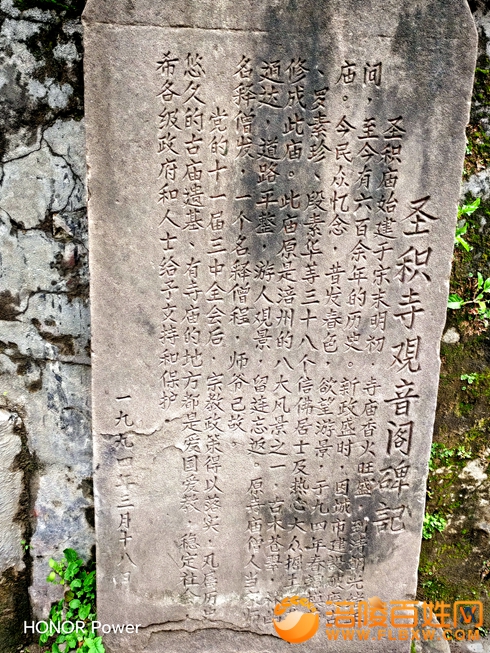 圣积寺观音阁碑记
圣积庙始建于宋末明初，寺庙香火旺盛，到
间，至今有六百余年的历史。新政盛时，因城市建设
庙。今民众忆念，昔发春色，欲望游景，于九四年春
、罗素珍、段素华等三十八个信佛居士及热心大众捐
修成此庙。此庙原是涪州的八大风景之一，古木苍翠，
道达，道路平整，游人观景，留莲忘返。原寺庙僧人当
名释僧发，一个名释僧程，师爷已故。
党的十一届三中全会后，宗教政策得以落实，凡属历史
悠久的古庙遗基、有寺庙的地方都是爱国爱教，稳定社会，
希各级政府和人士给予支持和保护
一九九四年三月十八日
HONOR Power
涪陵百姓网
WWW.FLBXW.COM